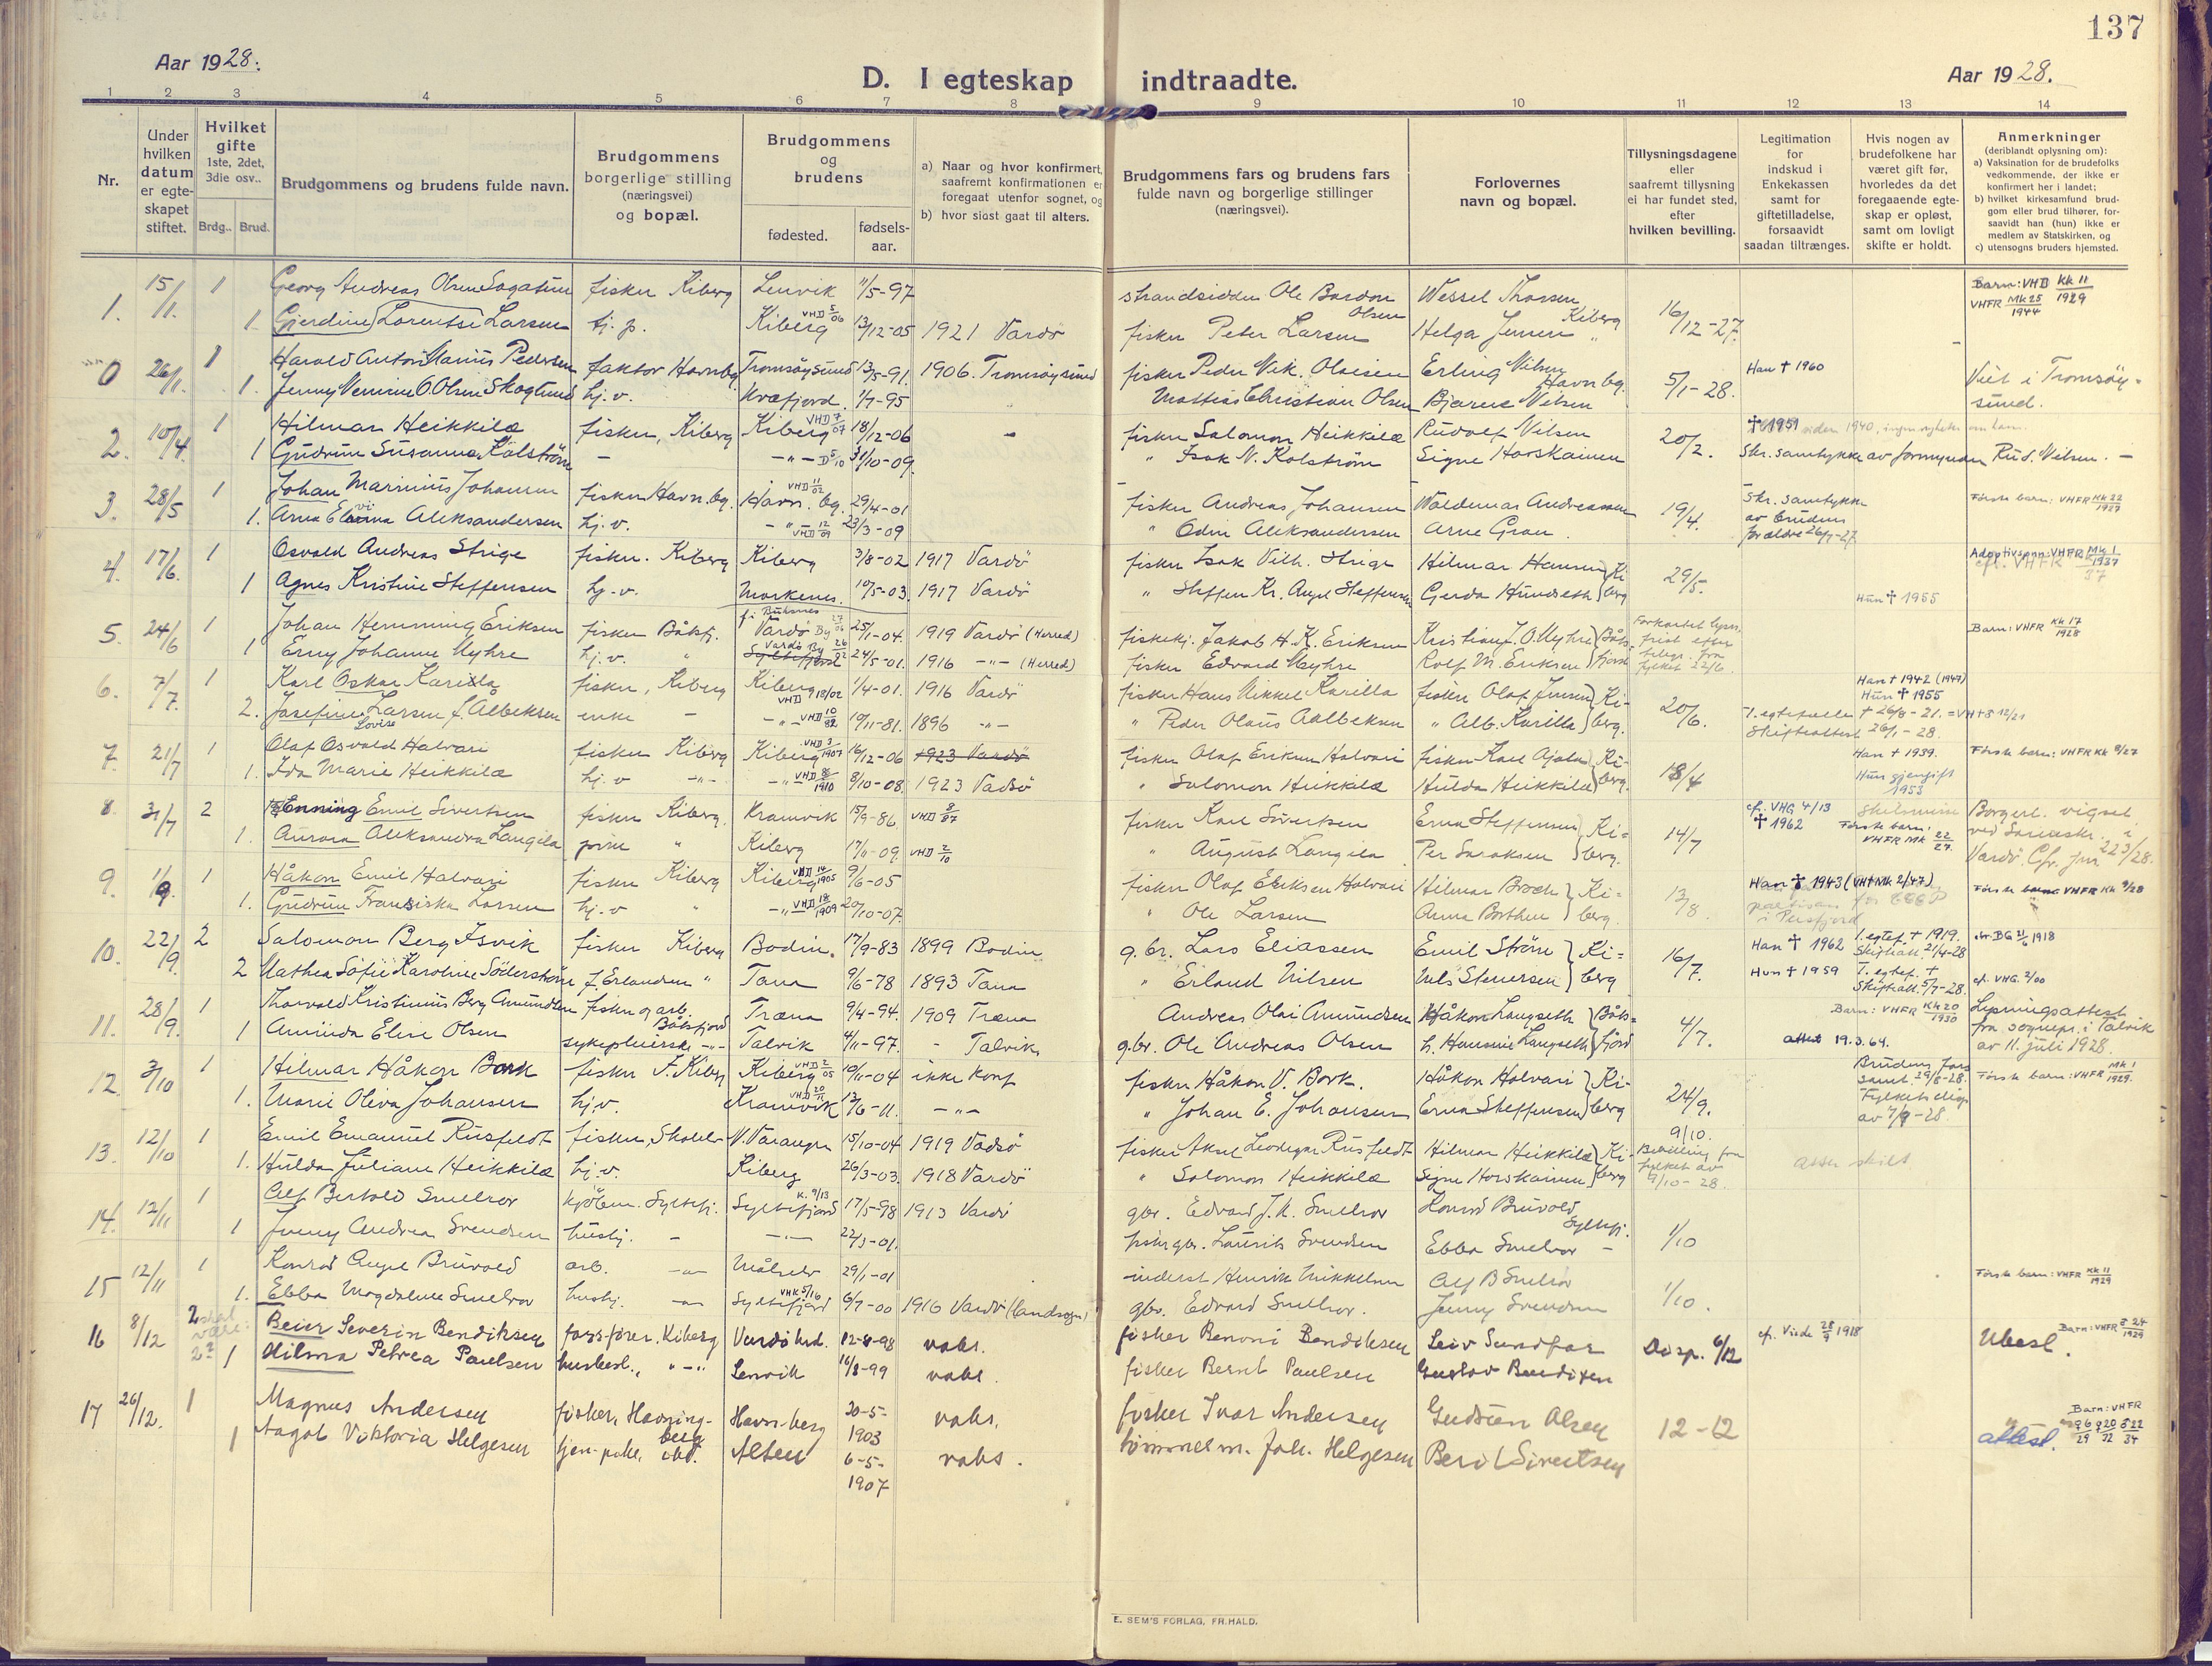 137
Aar 1928.
D. I egteskap indtraadte.
Aar 1928.
1 2 3 4 5 6 7 8 9 10 11 12 13 14
Nr.
Under hvilken datum er egte-skapet stiftet.
Hvilket gifte 1ste, 2det, 3die osv..
Brdg.. Brud.
Brudgommens og brudens fulde navn.
Brudgommens borgerlige stilling (næringsvei) og bopæl.
Brudgommens og brudens
fødested. fødsels-aar.
a) Naar og hvor konfirmert, saafremt konfirmationen er foregaat utenfor sognet, og
b) hvor sidst gaat til alters.
Brudgommens fars og brudens fars fulde navn og borgerlige stillinger (næringsvei).
Forlovernes navn og bopæl.
Tillysningsdagene eller saafremt tillysning ei har fundet sted, efter hvilken bevilling.
Legitimation for indskud i Enkekassen samt for giftetilladelse, forsaavidt saadan tiltrænges.
Hvis nogen av brudefolkene har været gift før, hvorledes da det foregaaende egte-skap er opløst, samt om lovligt skifte er holdt.
Anmerkninger (deriblandt oplysning om):
a) Vaksination for de brudefolks vedkommende, der ikke er konfirmert her i landet;
b) hvilket kirkesamfund brud-gom eller brud tilhører, for-saavidt han (hun) ikke er medlem av Statskirken, og
c) utensogns bruders hjemsted.
1. 15/1 1 Georg Andreas Olsen Sagatun fisker Kiberg Lenvik 11/5-97 strandsidder Ole Bardon Olsen Wessel Thorsen Kiberg 16/12-27. Barn: VHD Kk 11/1929 VHFR Mk 25/1944
1 Gjerdine Lorentse Larsen tj. p. Kiberg VHD 5/06 13/12-05 1921 Vardö fisker Peter Larsen Helga Jensen "
0 26/1. 1 Harald Anton Marius Pedersen faktor Havnbg. Tromsøysund 13/5-91. 1906. Tromsøysund fisker Peder Nik. Olaisen Erling Nilsen Havnbg. 5/1-28. Han † 1960 Viet i Tromsøy-sund.
1. Jenny O. Olsen Skoglund hj. v. Kvæfjord. 1/7-95 Mathias Christian Olsen Bjarne Nilsen
2. 10/4. 1 Hilmar Heikkilæ fisker, Kiberg Kiberg VHD 7/07 18/12-06 - fisker Salomon Heikkilæ Rudolf Nilsen 20/2. † 1951
1 Gudrun Susanna Kolström - -"- D 5/10 31/10-09. " Isak N. Kolström Signe Horskainen Skr. samtykke av formynder Rud. Nilsen. -
3. 28/5 1 Johan Marinius Johansen fisker Havn. bg. Havn. bg. VHD 11/02 29/4-01 fisker Andreas Johansen Waldemar Andreassen 19/4. Skr. samtykke av brudens forældre 26/4-27. Förste barn: VHFR Kk 22/1929
1. Arna Aleksandersen hj. v. -"- VHD 12/09 23/3-09 " Odin Aleksandersen Arne Gran.
4. 17/6. 1 Osvald Andreas Strige fisker. Kiberg Kiberg 3/8-02 1917 Vardö fisker Isak Vilh. Strige Hilmar Hansen } Ki-berg 29/5. Adoptivsønn: VHFR Mk 1/1937
1 Agnes Kristine Steffensen hj. v. Markenes. 10/5-03. 1917 Vardö " Steffen Kr. Angel Steffensen Gerda Hundseth Hun † 1955
5. 24/6 1 Johan Hemming Eriksen fisker Båtsfj. f. Buksnes Vardö By 25/1-04. 1919 Vardö (Herred) fiskekj. Jakob H. K. Eriksen Kristian J. O. Myhre } Båts-fjord Forkortet lysn. frist efter fra fylket 22/6. Barn: VHFR Kk 17/1928
1 Erny Johanne Myhre hj. v. " Vardö By Syltefjord 24/5-01. 1916 -"- (Herred) fisker Edvard Myhre Rolf M. Eriksen
6. 7/7. 1 Karl Oskar Karilla fisker, Kiberg Kiberg VHD 18/02 1/4-01. 1916 Vardö fisker Hans Nikkel Karilla fisker Olaf Jensen } Ki-berg. 20/6. Han † 1942 (1947) Hun † 1955
2. Josefine Lovise Larsen f. Albeksen enke - -"- VHD 10/82 10/11-81. 1896 -"- " Peder Olaus Aalbeksen " Alb. Karilla 1. egtefælle † 26/8-21. = VHtB 12/21 Skifteattest 26/1-28.
7. 21/7 1 Olaf Osvald Halvari fisker Kiberg Kiberg VHD 3/1907 16/12-06 1923 Vardö fisker Olaf Eriksen Halvari fisker Karl Ajala } Ki-berg. 18/4 Han † 1939. Förste barn: VHFR Kk 8/27
1. Ida Marie Heikkilæ hj. v -"- -"- VHD 1910 8/10-08. 1923 Vadsö " Salomon Heikkilæ Hulda Heikkilæ Hun gjengift 1953
8. 31/7 2 Henning Emil Sivertsen fisker Kiberg. Kramvik 15/9-86 VHD 8/87 fisker Karl Sivertsen Erna Steffensen } Ki-berg. 14/7 cf. VHG 4/13 † 1962 Skilsmisse Förste barn: VHFR Mk 22/27. Borgerl. vigsel ved Sorenskr. i Vardö. Cfr. jnr 223/28.
1. Aurora Aleksandra Langila pike " Kiberg 17/11-09. VHD 2/10 " August Langila Per Saraksen
9. 1/9. 1 Håkon Emil Halvari fisker Kiberg Kiberg VHD 14/1905 9/6-05 fisker Olaf Eriksen Halvari Hilmar Bork } Ki-berg. 13/8. Han † 1943 (VHtMk 2/47) partisan for i Persfjord Förste barn VHFR Kk 9/28
1. Gudrun Franziska Larsen hj. v " -"- VHD 18/1909 20/10-07. " Ole Larsen Anna Borthen
10. 22/9. 2 Salomon Berg Isvik fisker Kiberg Bodin. 17/9-83 1899 Bodin g. br. Lars Eliassen Emil Ström } Ki-berg 16/7. Han † 1962 1. egtef. † 1919. Skifteatt. 21/4-28 1918
2 Mathea Sofie Karoline Söderström f. Erlandsen " Tana 9/6-78 1893 Tana " Erland Nilsen Nils Stenersen Hun † 1959 1. egtef. † Skifteatt. 5/7-28. cf. VHG. 2/00
11. 28/9. 1 Thorvald Kristinius Berg Amundsen fisker og arb. Båtsfjord Træna 9/4-94. 1909 Træna Andreas Olai Amundsen Håkon Langseth } Båts-fjord 4/7. Barn: VHFR Kk 20/1930 Lysningsattest fra sognepr. i Talvik av 11. juli 1928.
1 Amunda Elise Olsen sykepleierske -"- Talvik 4/11-97. - Talvik g. br. Ole Andreas Olsen h. Hansine Langseth attest 19.3.64.
12. 3/10 1 Hilmar Håkon Bork fisker F. Kiberg Kiberg VHD 2/05 10/11-04 ikke konf fisker Håkon V. Bork. Håkon Halvari } Ki-berg 24/9. Brudens fars samt. 29/8-28. Fylkets disp. av 7/9-28. Förste barn: VHFR Mk 1/1929.
1. Marie Oliva Johansen hj. v. Kramvik VHD 20/11 13/6-11. -"- " Johan E. Johansen Erna Steffensen
13. 12/10 1 Emil Emanuel Rusfeldt fisker, N. Varanger 15/10-04 1919 Vadsö fisker Aksel Leodegar Rusfeldt Hilmar Heikkilæ } Ki-berg 9/10. Bevilling fra fylket av 9/10-28.
1. Hulda Juliane Heikkilæ hj. v. Kiberg 26/3-03. 1918 Vardö " Salomon Heikkilæ Signe Horskainen atter skilt
14. 12/11 1 Alf Bertold Smelror kjöbm. Syltefj. Syltefjord K. 9/13 17/5-98 1913 Vardö gbr. Edvard J. K. Smelror Konrad Bruvold Syltefj. 1/10
1 Jenny Andrea Svendsen husbj. - -"- 22/3-01. fisker gbr. Laurits Svendsen Ebba Smelror -
15 12/11 1 Konrad Angel Bruvold arb. -"- Målselv 29/1-01 inderst Henrik Mikkelsen Alf B Smelror 1/10. Förste barn: VHFR Kk 11/1929
1. Ebba Magdalene Smelror husbj. -"- Syltefjord VHK 5/16 6/7-00 1916 Vardö (landsogn) gbr. Edvard Smelror. Jenny Svendsen
16 8/12 2 skal være: 2? Beier Severin Bendiksen fors.fører. Kiberg Vardö hrd. 12-8-98 vabs. fisker Benoni Bendiksen Leiv Sundfær Disp. 6/12 cf. Viede 28/9 1918 Ubest. Barn: VHFR 24/1929
1 Hilma Petrea Paulsen husbest., "-" Lenvik 16/8-99 vabs. fisker Bernt Paulsen Gustav Bendixen
17 26/12. 1 Magnus Andersen fisker, Havning-berg Havn-berg 20-5-1903 vabs. fisker Ivar Andersen Gudrun Olsen 12-12 attest. Barn: VHFR 29 32 34
1 Aagot Viktoria Helgesen tjen.-pike, ibd. Alten 6-5-1907 vabs. tømmerm. Joh. Helgesen Berit Sivertsen
E. SEM'S FORLAG, FR.HALD.